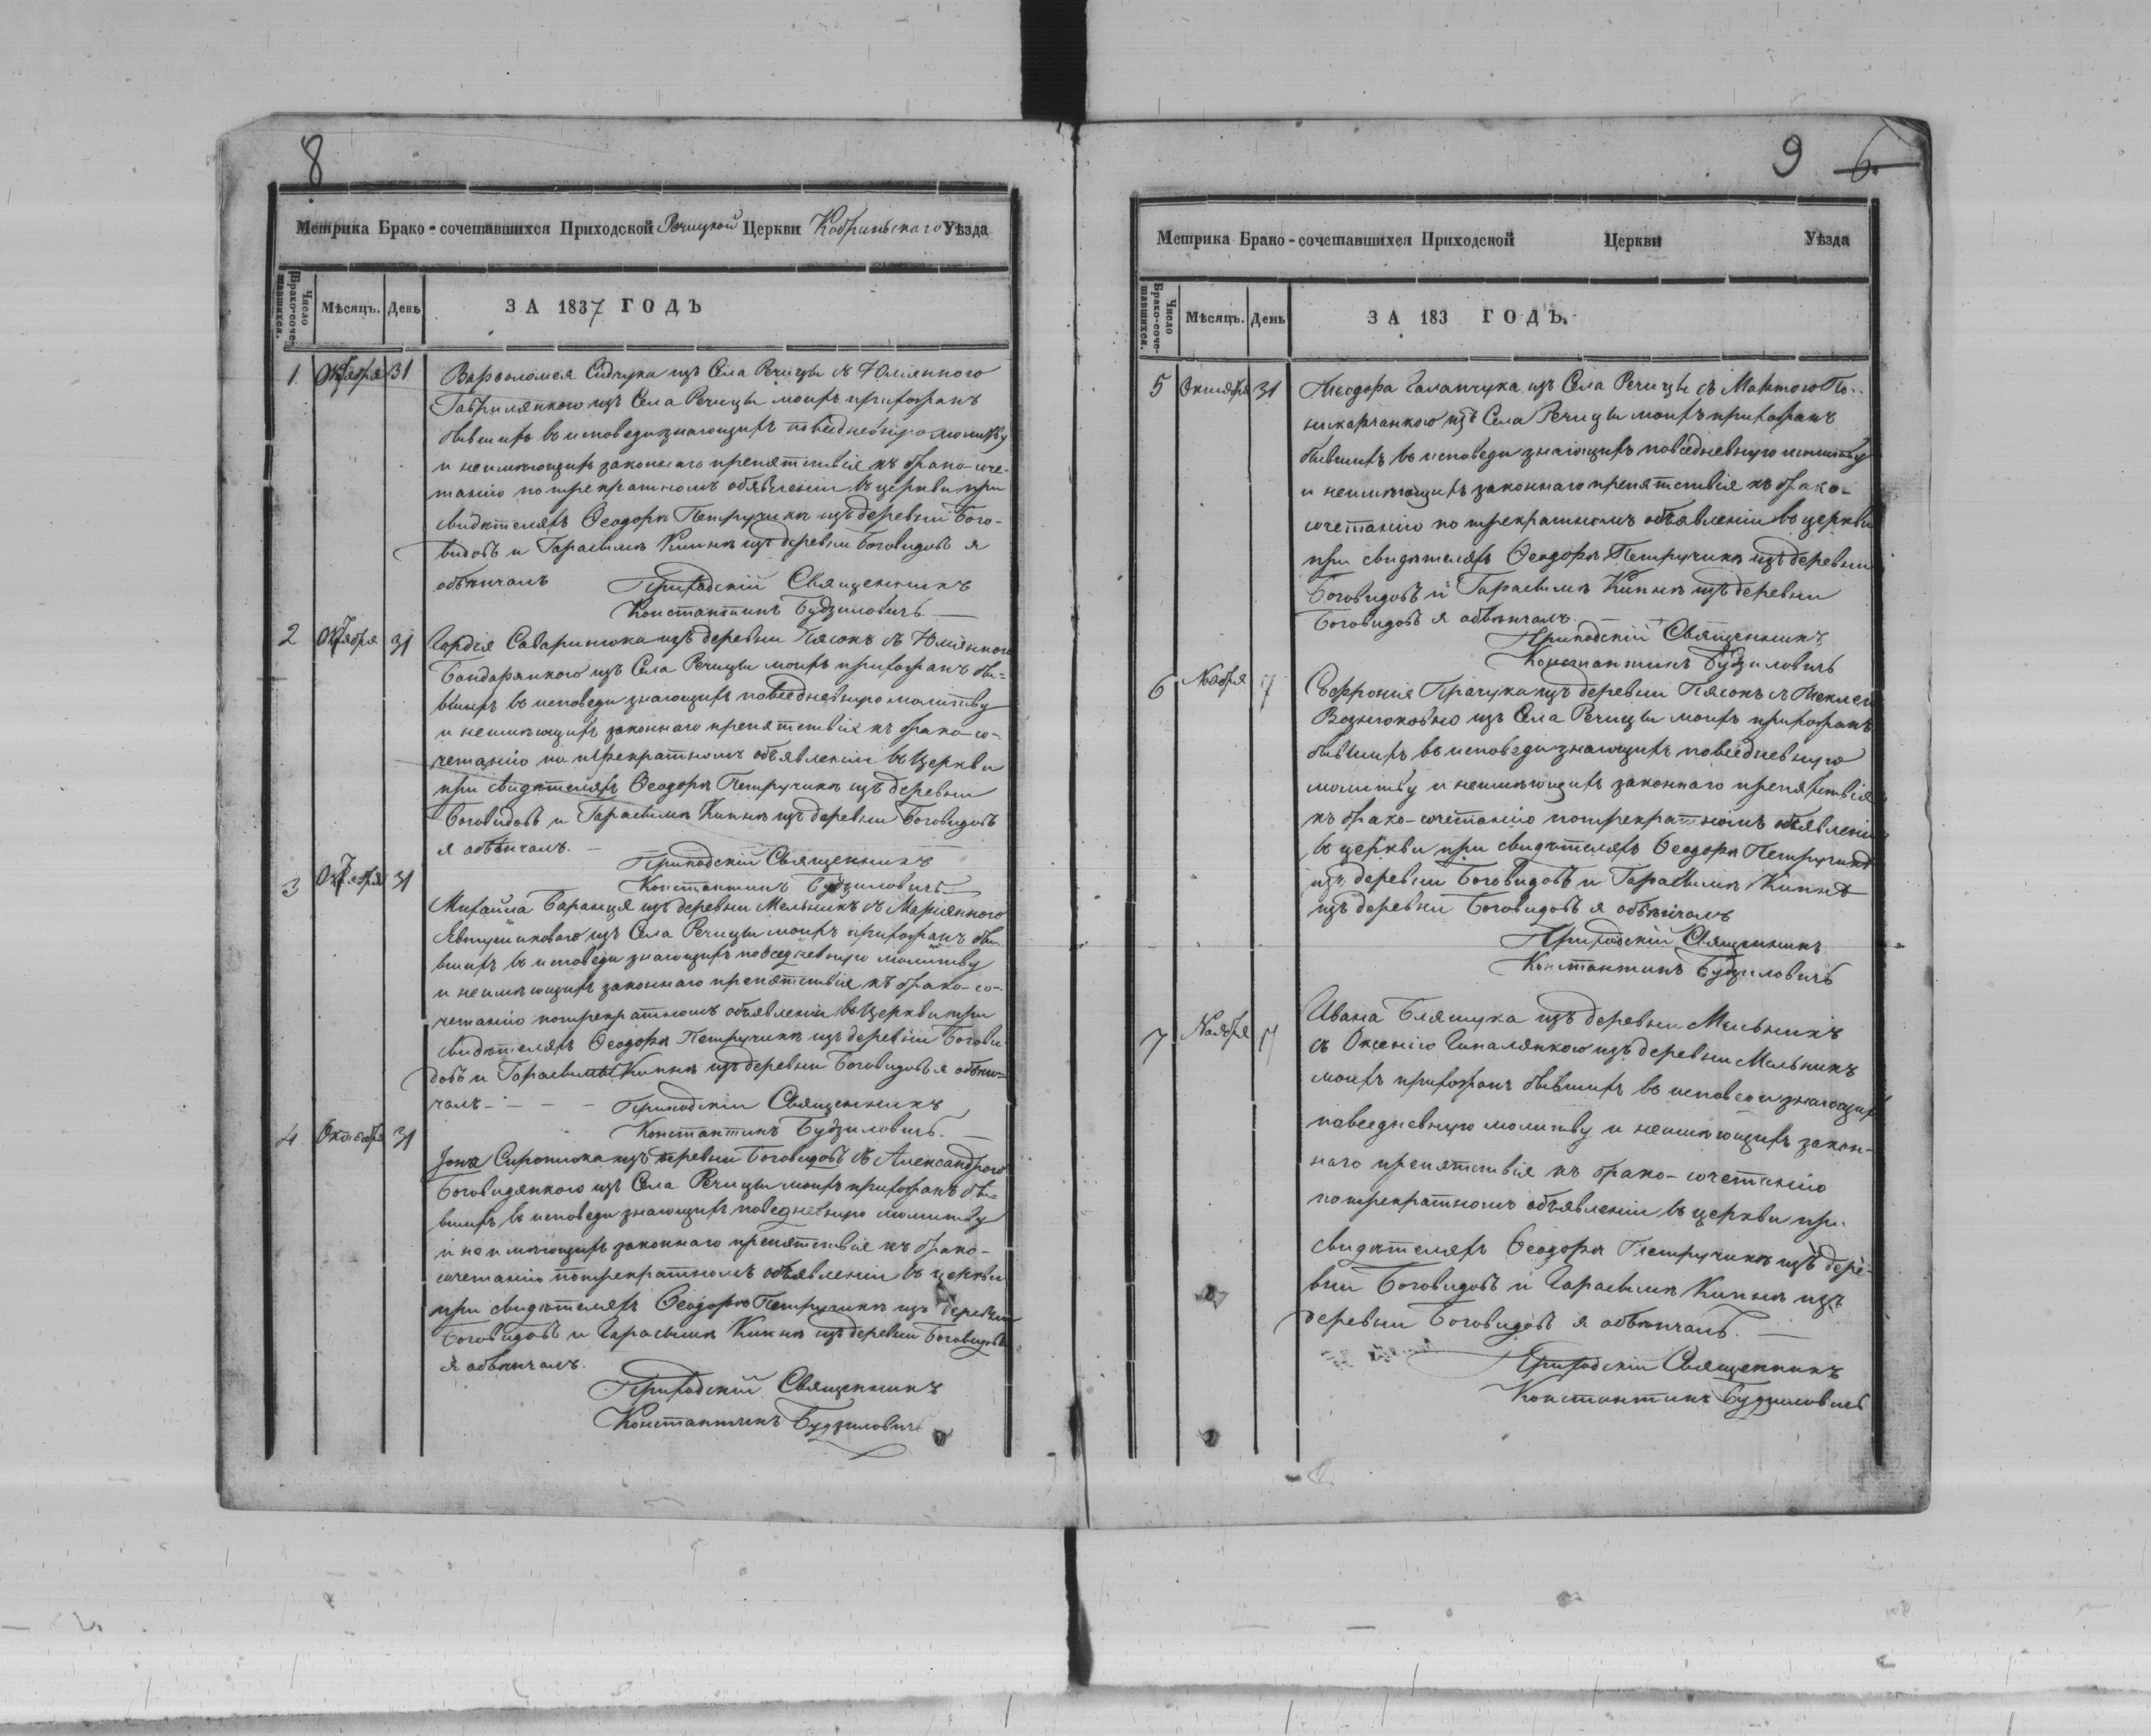 8
Метрика Брако-сочетавшихся Приходской Речицкой Церкви Кобринскаго Уѣзда
Число Брако-соче-тавшихся.
Мѣсяцъ.
День
ЗА 1837 ГОДЪ
1 Октября 31 Варѳоломея Сидчука изъ Села Речицы съ Юліянною
Гаврилянкою изъ Села Речицы моихъ прихожанъ
бывшихъ въ исповеди знающихъ повседневную молитву
и неимѣющихъ законнаго препятствія къ брако-соче-
танію по трекратномъ объявленіи въ церкви при
свидѣтеляхъ Ѳеодорѣ Петручикѣ изъ деревни Бого-
видовъ и Гарасимѣ Кипнѣ изъ деревни Боговидовъ я
обвѣнчалъ Приходскій Священникъ
Константинъ Будзиловичъ
2 Октября 31 Гордія Саваринюка изъ деревни Пясокъ съ Юліянною
Бондарянкою изъ Села Речицы моихъ прихожанъ бы-
вшихъ въ исповеди знающихъ повседневную молитву
и неимѣющихъ законнаго препятствія къ брако-со-
четанію по трекратномъ объявленіи въ Церкви
при свидѣтеляхъ Ѳеодорѣ Петручикѣ изъ деревни
Боговидовъ и Гарасимѣ Кипнѣ изъ деревни Боговидовъ
я обвѣнчалъ. Приходскій Священникъ
Константинъ Будзиловичъ
3 Октября 31
Михайла Баранця изъ деревни Мельникъ съ Маріянною
изъ Села Речицы моихъ прихожанъ бы-
вшихъ въ исповеди знающихъ повседневную молитву
и неимѣющихъ законнаго препятствія къ брако-со-
четанію по трекратномъ объявленіи въ Церкви при
свидѣтеляхъ Ѳеодорѣ Петручикѣ изъ деревни Богови-
довъ и Гарасимѣ Кипнѣ изъ деревни Боговидовъ я обвѣн-
чалъ - - - Приходскій Священникъ
Константинъ Будзиловичъ.
4 Октября 31
Іона Сиротюка изъ деревни Боговидовъ съ Александрою
Боговидянкою изъ Села Речицы моихъ прихожанъ бы-
вшихъ въ исповеди знающихъ повседневную молитву
и неимѣющихъ законнаго препятствія къ брако-
сочетанію по трекратномъ объявленіи въ церкви
при свидѣтеляхъ Ѳеодорѣ Петручикѣ изъ деревни
Боговидовъ и Гарасимѣ Кипнѣ изъ деревни Боговидовъ
я обвѣнчалъ.
Приходскій Священникъ
Константинъ Будзиловичъ
9 6
Метрика Брако-сочетавшихся Приходской Церкви Уѣзда
Число Брако-соче-тавшихся.
Мѣсяцъ.
День
ЗА 183 ГОДЪ.
5 Октября 31 Ѳеодора Галапчука изъ Села Речицы съ
изъ Села Речицы моихъ прихожанъ
бывшихъ въ исповеди знающихъ повседневную молитву
и неимѣющихъ законнаго препятствія къ брако-
сочетанію по трекратномъ объявленіи въ церкви
при свидѣтеляхъ Ѳеодорѣ Петручикѣ изъ деревни
Боговидовъ и Гарасимѣ Кипнѣ изъ деревни
Боговидовъ я обвѣнчалъ.
Приходскій Священникъ
Константинъ Будзиловичъ
6 Ноября 7 Софронія Прачука изъ деревни Пясокъ съ Ѳеклею
изъ Села Речицы моихъ прихожанъ
бывшихъ въ исповеди знающихъ повседневную
молитву и неимѣющихъ законнаго препятствія
къ брако-сочетанію по трекратномъ объявленіи
въ церкви при свидѣтеляхъ Ѳеодорѣ Петручикѣ
изъ деревни Боговидовъ и Гарасимѣ Кипнѣ
изъ деревни Боговидовъ я обвѣнчалъ
Приходскій Священникъ
Константинъ Будзиловичъ
7 Ноября 7 Ивана Бляшука изъ деревни Мельникъ
съ Оксенію изъ деревни Мельникъ
моихъ прихожанъ бывшихъ въ исповеди знающихъ
повседневную молитву и неимѣющихъ закон-
наго препятствія къ брако-сочетанію
по трекратномъ объявленіи въ церкви при
свидѣтеляхъ Ѳеодорѣ Петручикѣ изъ дере-
вни Боговидовъ и Гарасимѣ Кипнѣ изъ
деревни Боговидовъ я обвѣнчалъ.
Приходскій Священникъ
Константинъ Будзиловичъ